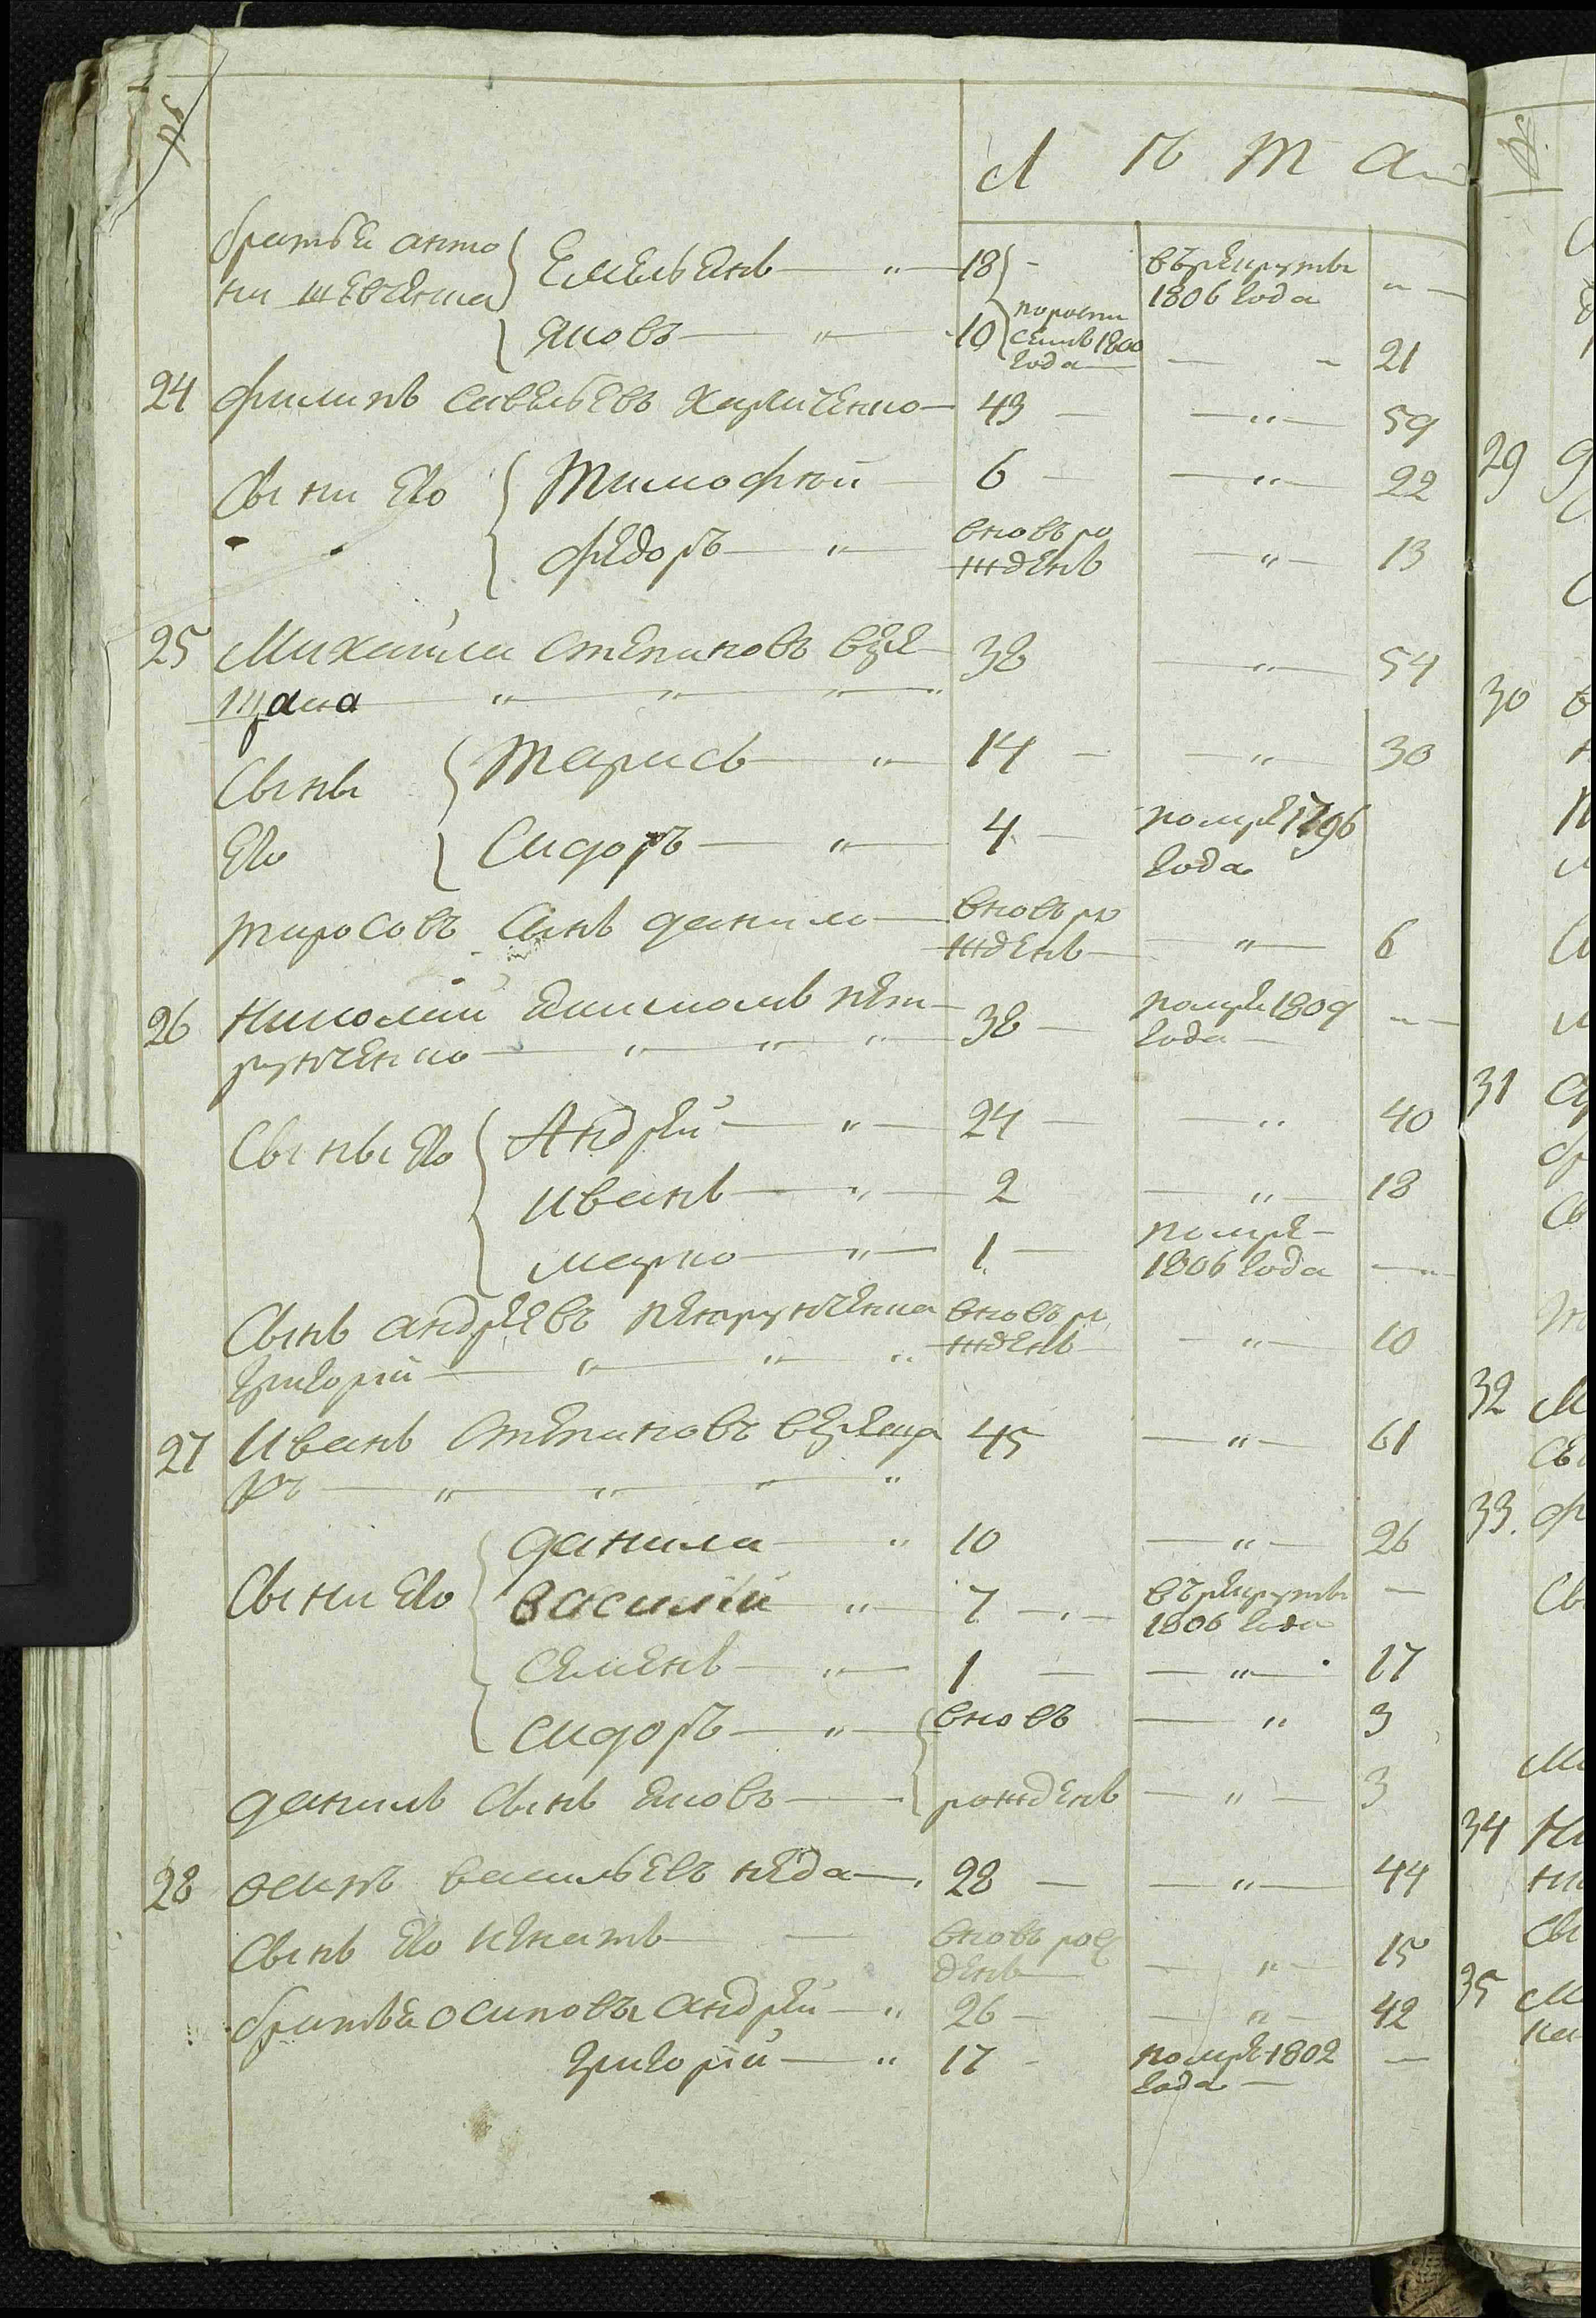 №
Л ѣ т а
братья анто
на шевченка
Емельянъ — " — 18 — в рекруты
1806 года
Яковъ — " — 10 по росписи
1800
года — — 21
24 Филипъ Савельевъ Харченко — 43 — — " — 59
Сыни Его Тимофѣй — 6 — — " — 22
Федоръ — " — вновь ро
жденъ — " — 13
25 Михайла Степановъ — 38 — " — 54
— " — " — "
Сыны Тарасъ — " — 14 — — " — 30
Его Сидоръ — " — 4 — помре 1796
года
Тарасовъ Сынъ данило — вновь ро
жденъ — — " — 6
26 Николай — 38 — помре 1809
года — " —
— " — " — "
Сыны Его Андрей — " — 24 — — " 40
Иванъ — " — 2 — " — 18
марко — " — 1 — помре —
1806 года — " —
Сынъ андреевъ вновь ро
жденъ — " — 10
Григорій — " — " — "
27 Иванъ Степановъ 45 — " — 61
ръ — " — " — " — "
Сыни Его данила — " 10 — " — 26
Василий — " — 7 — " — в рекруты
1806 года —
Семенъ — " — 1 — — " — 17
Сидоръ — " — вновь — " 3
данилъ Сынъ Яковъ — рожденъ — " — 3
28 осипъ васильевъ неда — 28 — — " — 44
Сынъ Его Игнатъ — — вновь рож
денъ — — " — 15
братья осиповы андрей — " 26 — — " — 42
Григорій — " 17 — помре 1802
года — —
29
30
31
32
33.
34
35